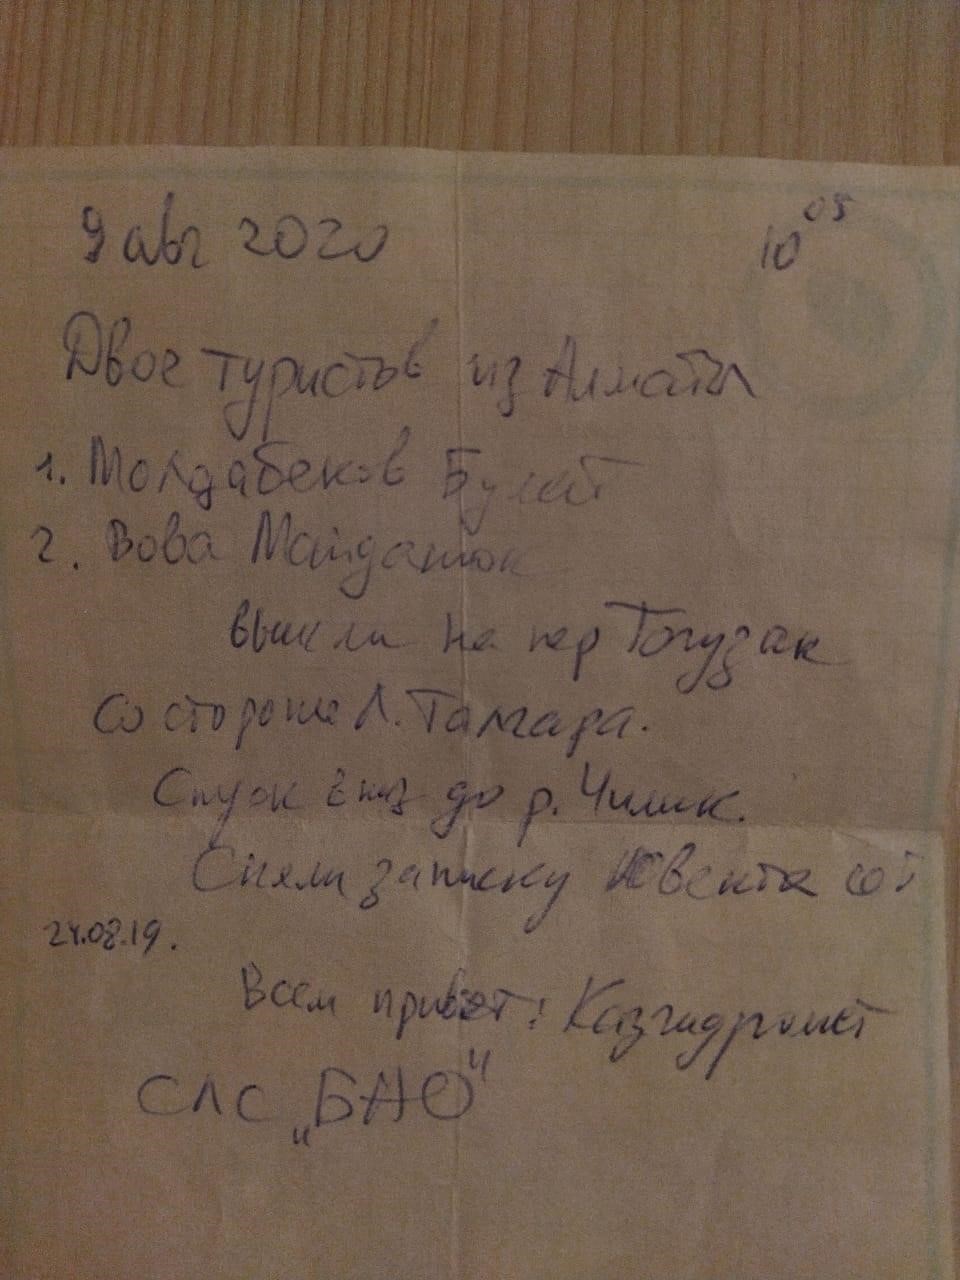 9 авг 2020 10 05
Двое туристов из Алматы
1. Молдабеков Булат
2. Вова Майданюк
вышли на пер Тогузак
со стороны Л. Талгара.
Спуск вниз до р. Чилик.
Сняли записку от
24.08.19.
Всем привет! Казгидромет
СЛС "БАО"